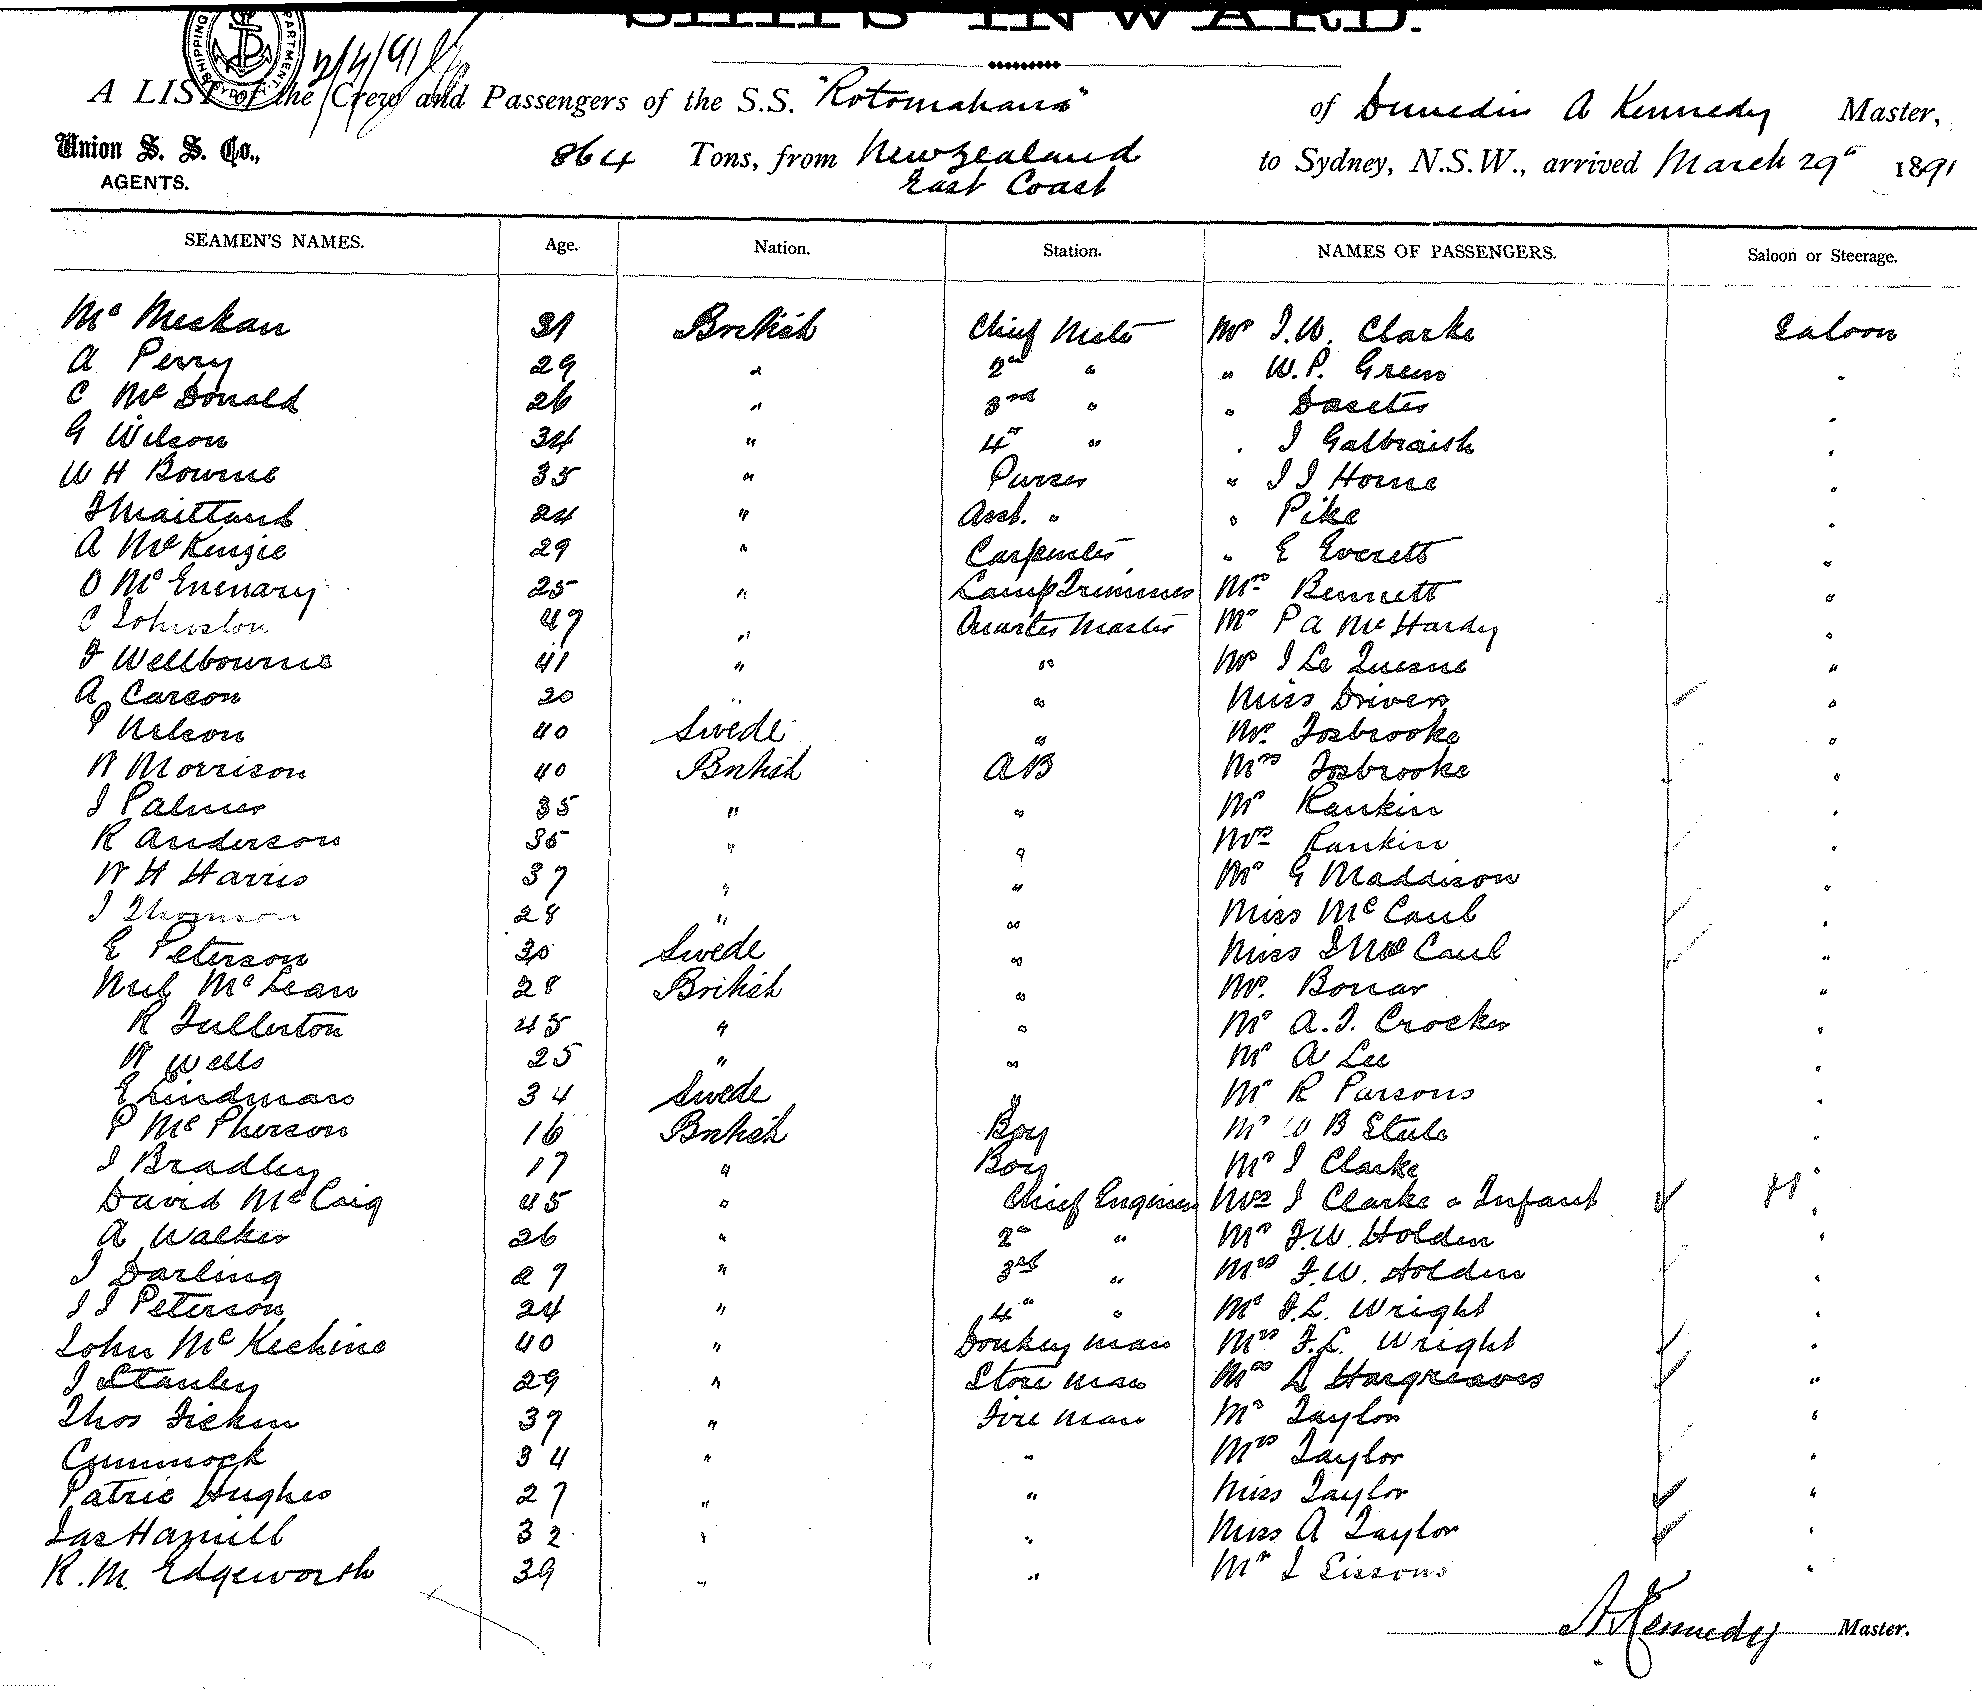 SHIPS INWARD.
2/4/91
A LIST of the Crew and Passengers of the S.S. "Rotomahana" of Dunedin A Kennedy Master,
Union S. S. Co., 864 Tons, from New Zealand to Sydney, N.S.W., arrived March 29th 1891
AGENTS. East Coast
SEAMEN'S NAMES. Age. Nation. Station. NAMES OF PASSENGERS. Saloon or Steerage.
Mc Meckan 31 British Chief Mate Mr J.W. Clarke Saloon
A Perry 29 " 2nd " " W.P. Green "
C McDonald 26 " 3rd " " "
G Wilson 34 " 4th " " J Galbraith "
W H Bowne 35 " Purser " J J Horne "
J Maitland 24 " Asst. " " Pike "
A McKenzie 29 " Carpenter " E Everett "
O McEnenary 25 " Lamp Trimmer Mrs Bennett "
C Johnston 47 " Quarter Master Mr P A McHardy "
J Wellbourne 41 " " Mr J Le Quesne "
A Carson 20 " " Miss Drivers "
P Nelson 40 Swede " Mr. Fosbrooke "
W Morrison 40 British AB Mrs Fosbrooke "
J Palmer 35 " " Mr Rankin "
R Anderson 35 " " Mrs Rankin "
W H Harris 37 " " Mr G Maddison "
J Thomson 28 " " Miss McCaul "
E Peterson 30 Swede " Miss J McCaul "
Neil McLean 28 British " Mr. Bonar "
R Fullerton 45 " " Mr A.J. Crocker "
W Wells 25 " " Mr A Lee "
E Lindman 34 Swede " Mr R Parsons "
P McPherson 16 British Boy Mr W B Steele "
J Bradley 17 " Boy Mr J Clarke "
David McCaig 45 " Chief Engineer Mrs J Clarke & Infant "
A Walker 26 " 2nd " Mr F.W. Holden "
J Darling 27 " 3rd " Mrs F.W. Holden "
J J Peterson 24 " 4th " Mr F.L. Wright "
John McKechine 40 " Donkey man Mrs F.L. Wright "
J Stanley 29 " Store man Mrs L Hargreaves "
Thos Ficken 37 " Fire man Mr Taylor "
Cummock 34 " " Mrs Taylor "
Patric Hughes 27 " " Miss Taylor "
Jas Hamill 32 " " Miss A Taylor "
R.M. Edgeworth 39 " " Mr J Sissons "
A Kennedy Master.